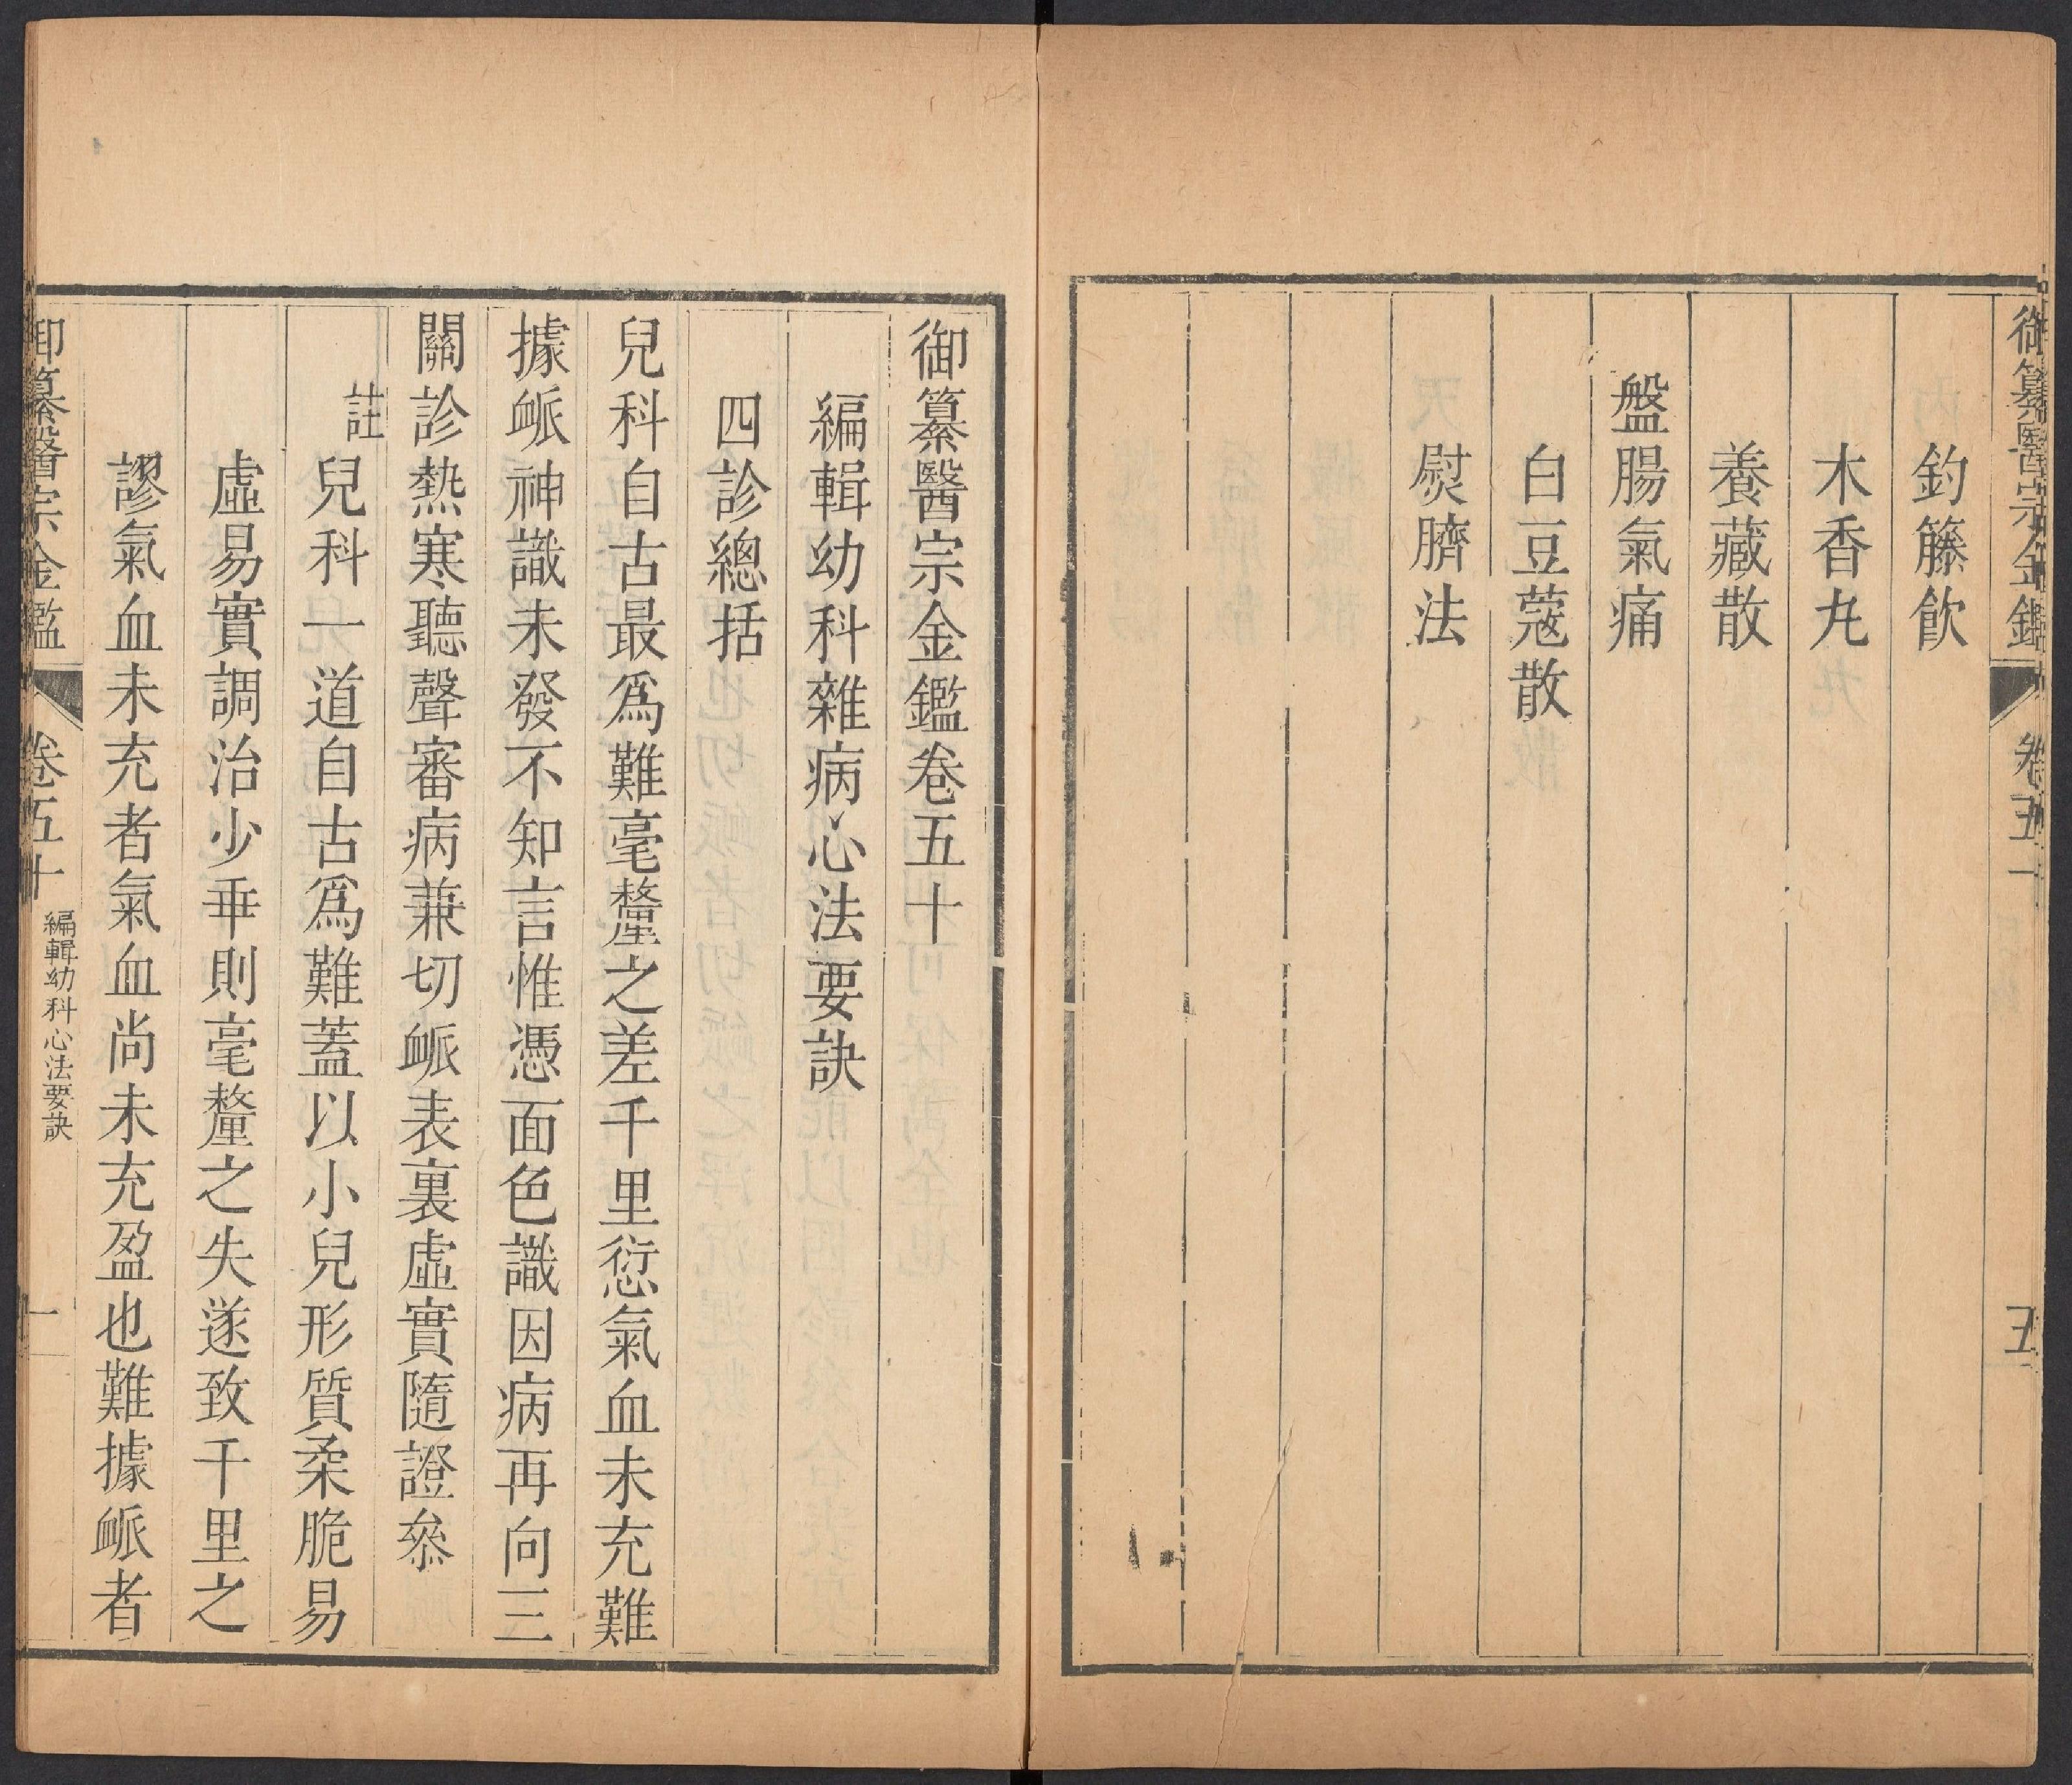 御纂醫宗金鑑
卷五十
五
釣籐飲
木香丸
養藏散
盤腸氣痛
白豆蔻散
熨臍法
御纂醫宗金鑑卷五十
編輯幼科雜病心法要訣
四診總括
兒科自古最爲難毫釐之差千里愆氣血未充難
據脈神識未發不知言惟憑面色識因病再向三
關診熱寒聽聲審病兼切脈表裏虛實隨證叅
註兒科一道自古爲難蓋以小兒形質柔脆易
虛易實調治少乖則毫釐之失遂致千里之
謬氣血未充者氣血尚未充盈也難據脈者
御纂醫宗金鑑
卷五十
編輯幼科心法要訣
一